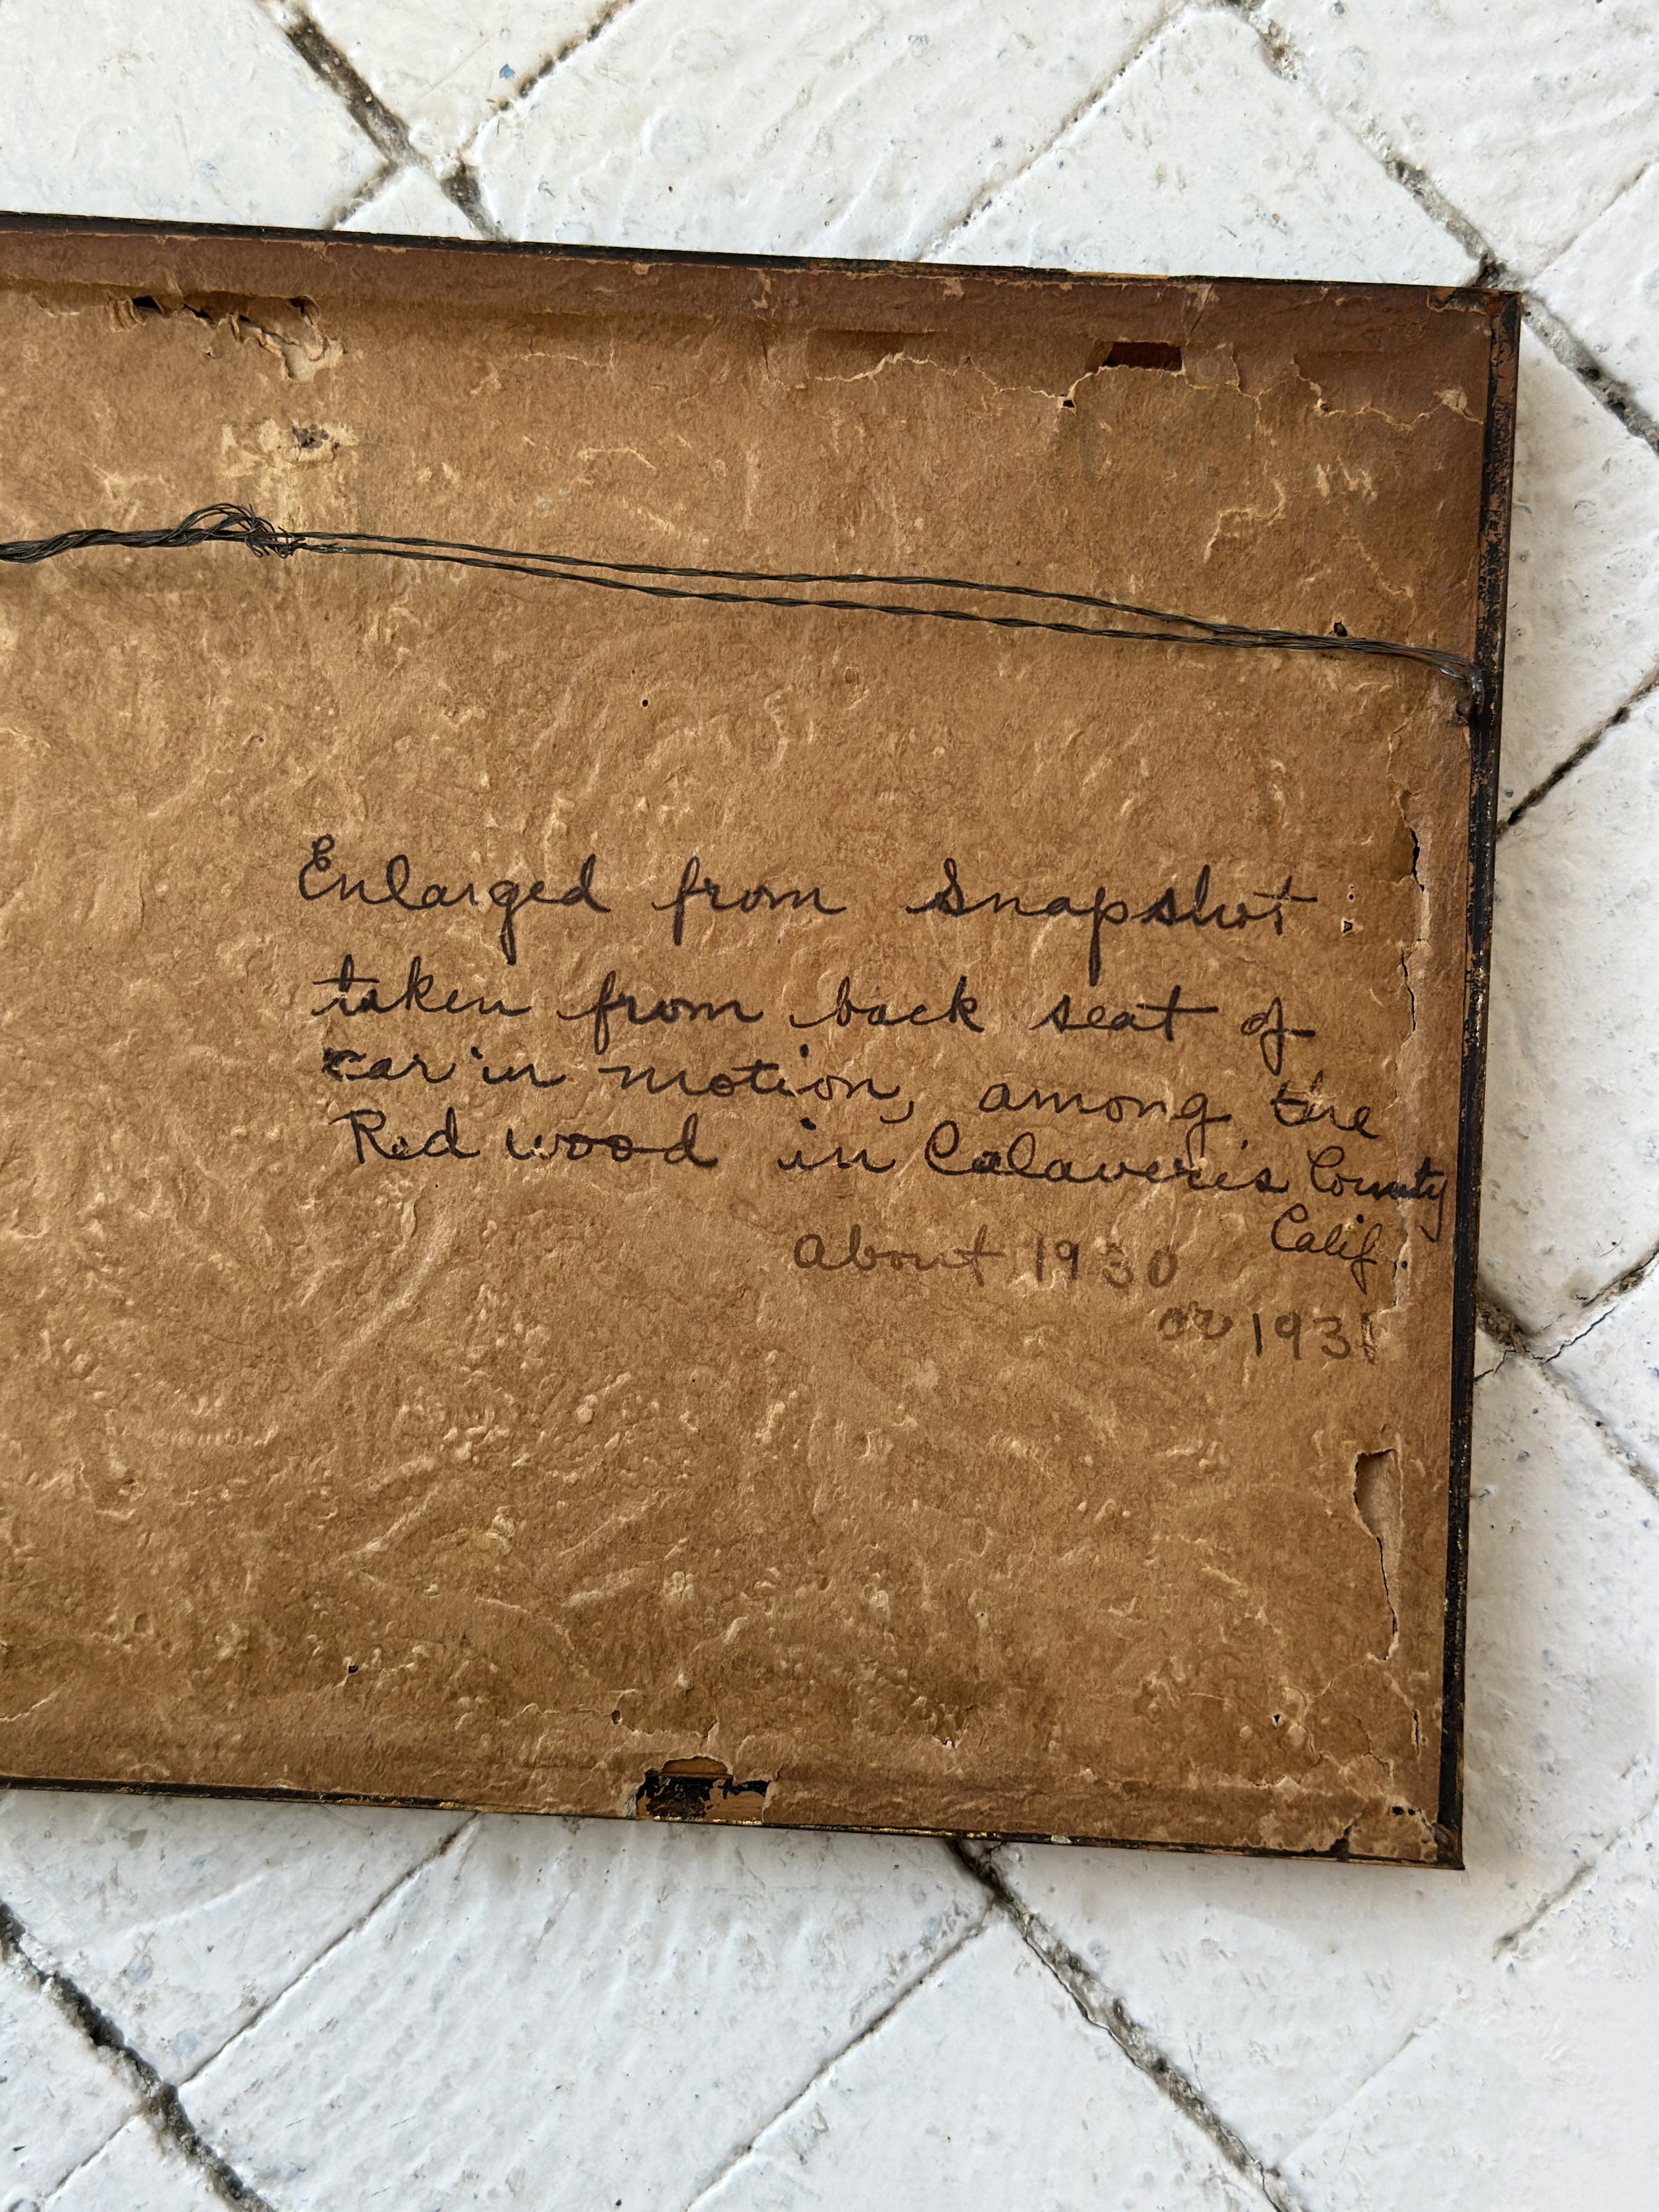 Enlarged from Snapshot
taken from back seat of
car in motion, among the
Red wood in Calaveris County
Calif.
about 1930
or 1931